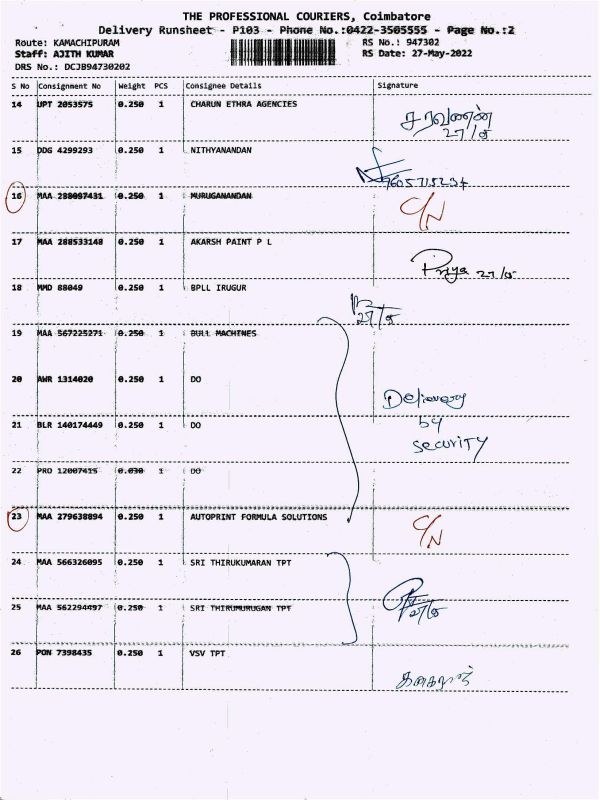 THE PROFESSIONAL COURIERS, Coimbatore
Delivery Runsheet - P103 - Phone No.:0422-3505555 - Page No.:2
Route: KAMACHIPURAM RS No.: 947302
Staff: AJITH KUMAR RS Date: 27-May-2022
DRS No.: DCJB94730202
S No Consignment No Weight PCS Consignee Details Signature
14 UPT 2053575 0.250 1 CHARUN ETHRA AGENCIES
சரவணன்
27/5
15 DDG 4299293 0.250 1 NITHYANANDAN
9605715234
16 MAA 288097431 0.250 1 MURUGANANDAN
C/N
17 MAA 288533148 0.250 1 AKARSH PAINT P L
Priya 27/5
18 MMD 88049 0.250 1 BPLL IRUGUR
27/5
19 MAA 567225271 0.250 1 BULL MACHINES
20 AWR 1314020 0.250 1 DO
Delivery
21 BLR 140174449 0.250 1 DO
by
security
22 PRO 12007415 0.030 1 DO
23 MAA 279638894 0.250 1 AUTOPRINT FORMULA SOLUTIONS
C/N
24 MAA 566326095 0.250 1 SRI THIRUKUMARAN TPT
25 MAA 562294497 0.250 1 SRI THIRUMURUGAN TPT
27/5
26 PON 7398435 0.250 1 VSV TPT